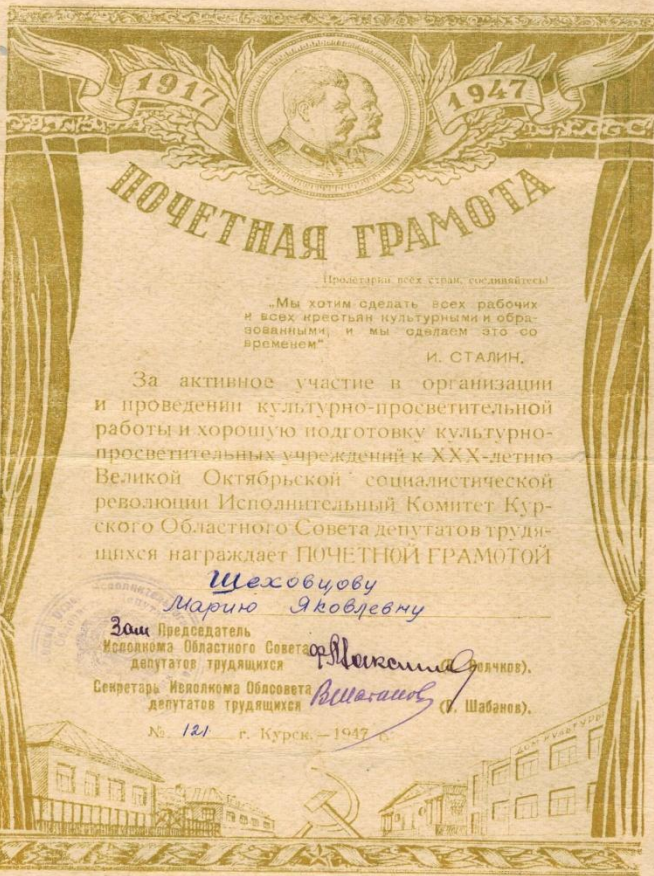 1917
1947
ПОЧЕТНАЯ ГРАМОТА
Пролетарии всех стран, соединяйтесь!
„Мы хотим сделать всех рабочих
и всех крестьян культурными и обра-
зованными, и мы сделаем это со
временем"
И. СТАЛИН.
За активное участие в организации
и проведении культурно-просветительной
работы и хорошую подготовку культурно-
просветительных учреждений к XXX-летию
Великой Октябрьской социалистической
революции Исполнительный Комитет Кур-
ского Областного Совета депутатов трудя-
щихся награждает ПОЧЕТНОЙ ГРАМОТОЙ
Шеховцову
Марию Яковлевну
Зам Председатель
Исполкома Областного Совета
депутатов трудящихся Волчков).
Секретарь Исполкома Облсовета
депутатов трудящихся (В. Шабанов).
№ 121 г. Курск.—1947 г.
ДОМ КУЛЬТУРЫ